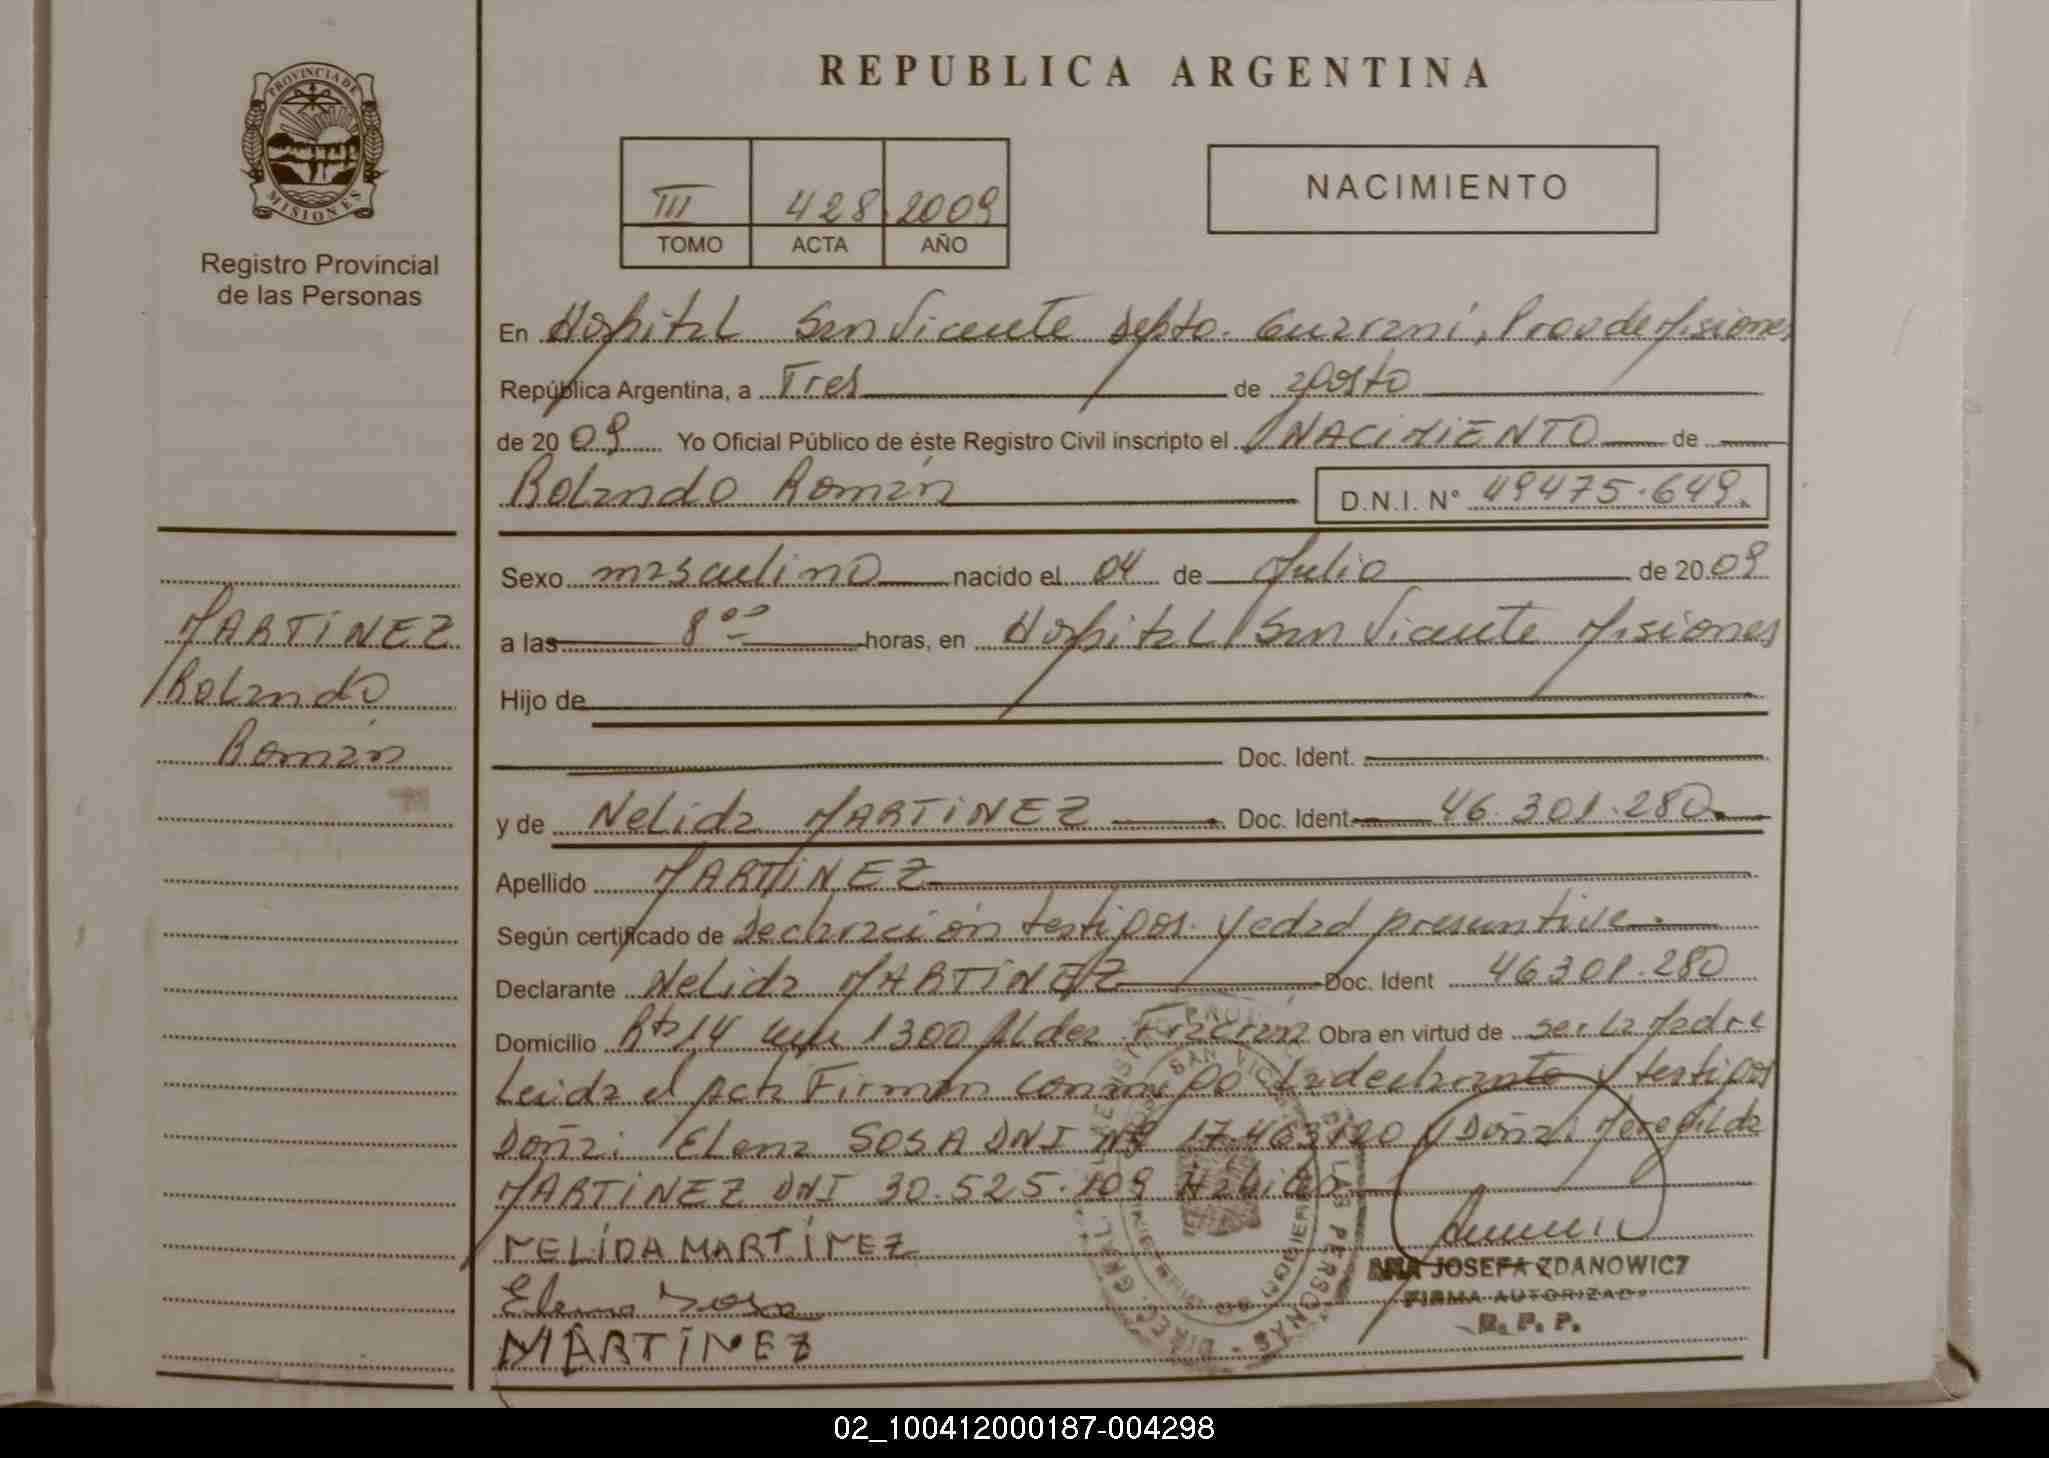 REPUBLICA ARGENTINA
PROVINCIA DE
MISIONES
Registro Provincial
de las Personas
III 428 2009
TOMO ACTA AÑO
NACIMIENTO
En Hospital San Vicente Depto. Guaraní, Prov de Misiones
República Argentina, a Tres de agosto
de 20 09 Yo Oficial Público de éste Registro Civil inscripto el NACIMIENTO de
Rolando Román
D.N.I. N° 49475.649.
Sexo masculino nacido el 04 de Julio de 20 09
a las 8 00 horas, en Hospital San Vicente Misiones
Hijo de
Doc. Ident.
y de Nelida MARTINEZ Doc. Ident. 46.301.280
Apellido MARTINEZ
Según certificado de Declaración testigos y edad presuntiva
Declarante Nelida MARTINEZ Doc. Ident 46301.280
Domicilio Rta 14 km 1300 Aldea Fracran Obra en virtud de ser la Madre
Leida el acta Firman conmigo la declarante y testigos
Doña: Elena SOSA DNI Nº 17.463120 y Doña: Meregilda
MARTINEZ DNI 30.525.109
NELIDA MARTÍNEZ
Elena Sosa
MARTÍNEZ
MARTINEZ
Rolando
Román
JOSEFA ZDANOWICZ
FIRMA AUTORIZADA
R. P. P.
02_100412000187-004298